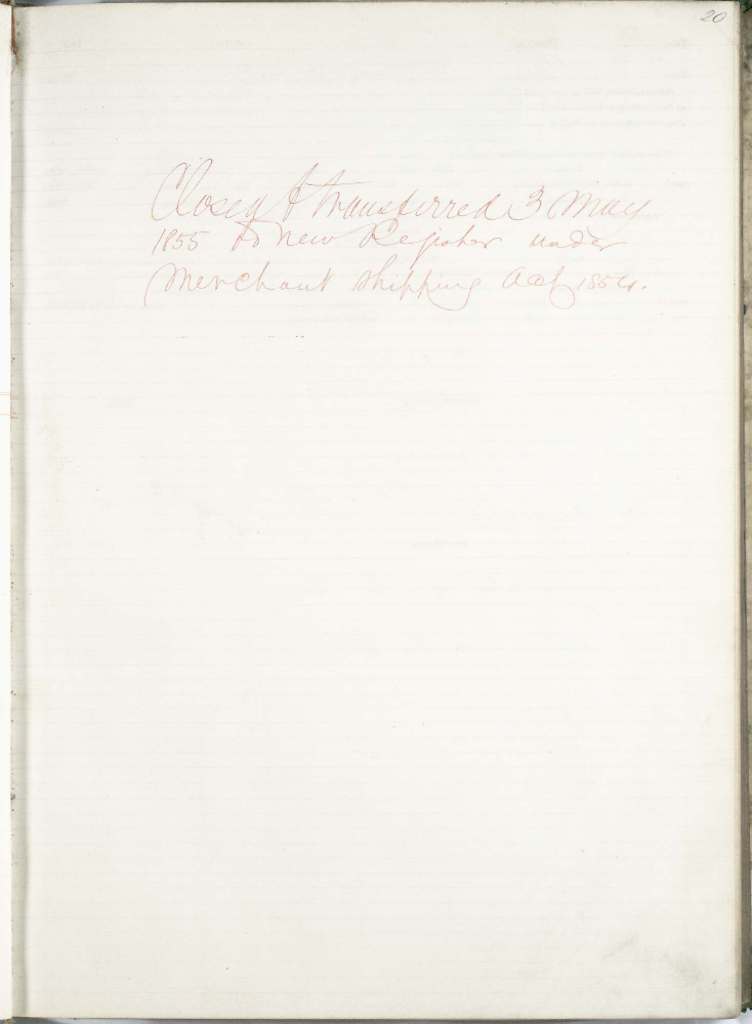 20
Closed & transferred 3 May
1855 to new Register under
Merchant Shipping Act 1854.